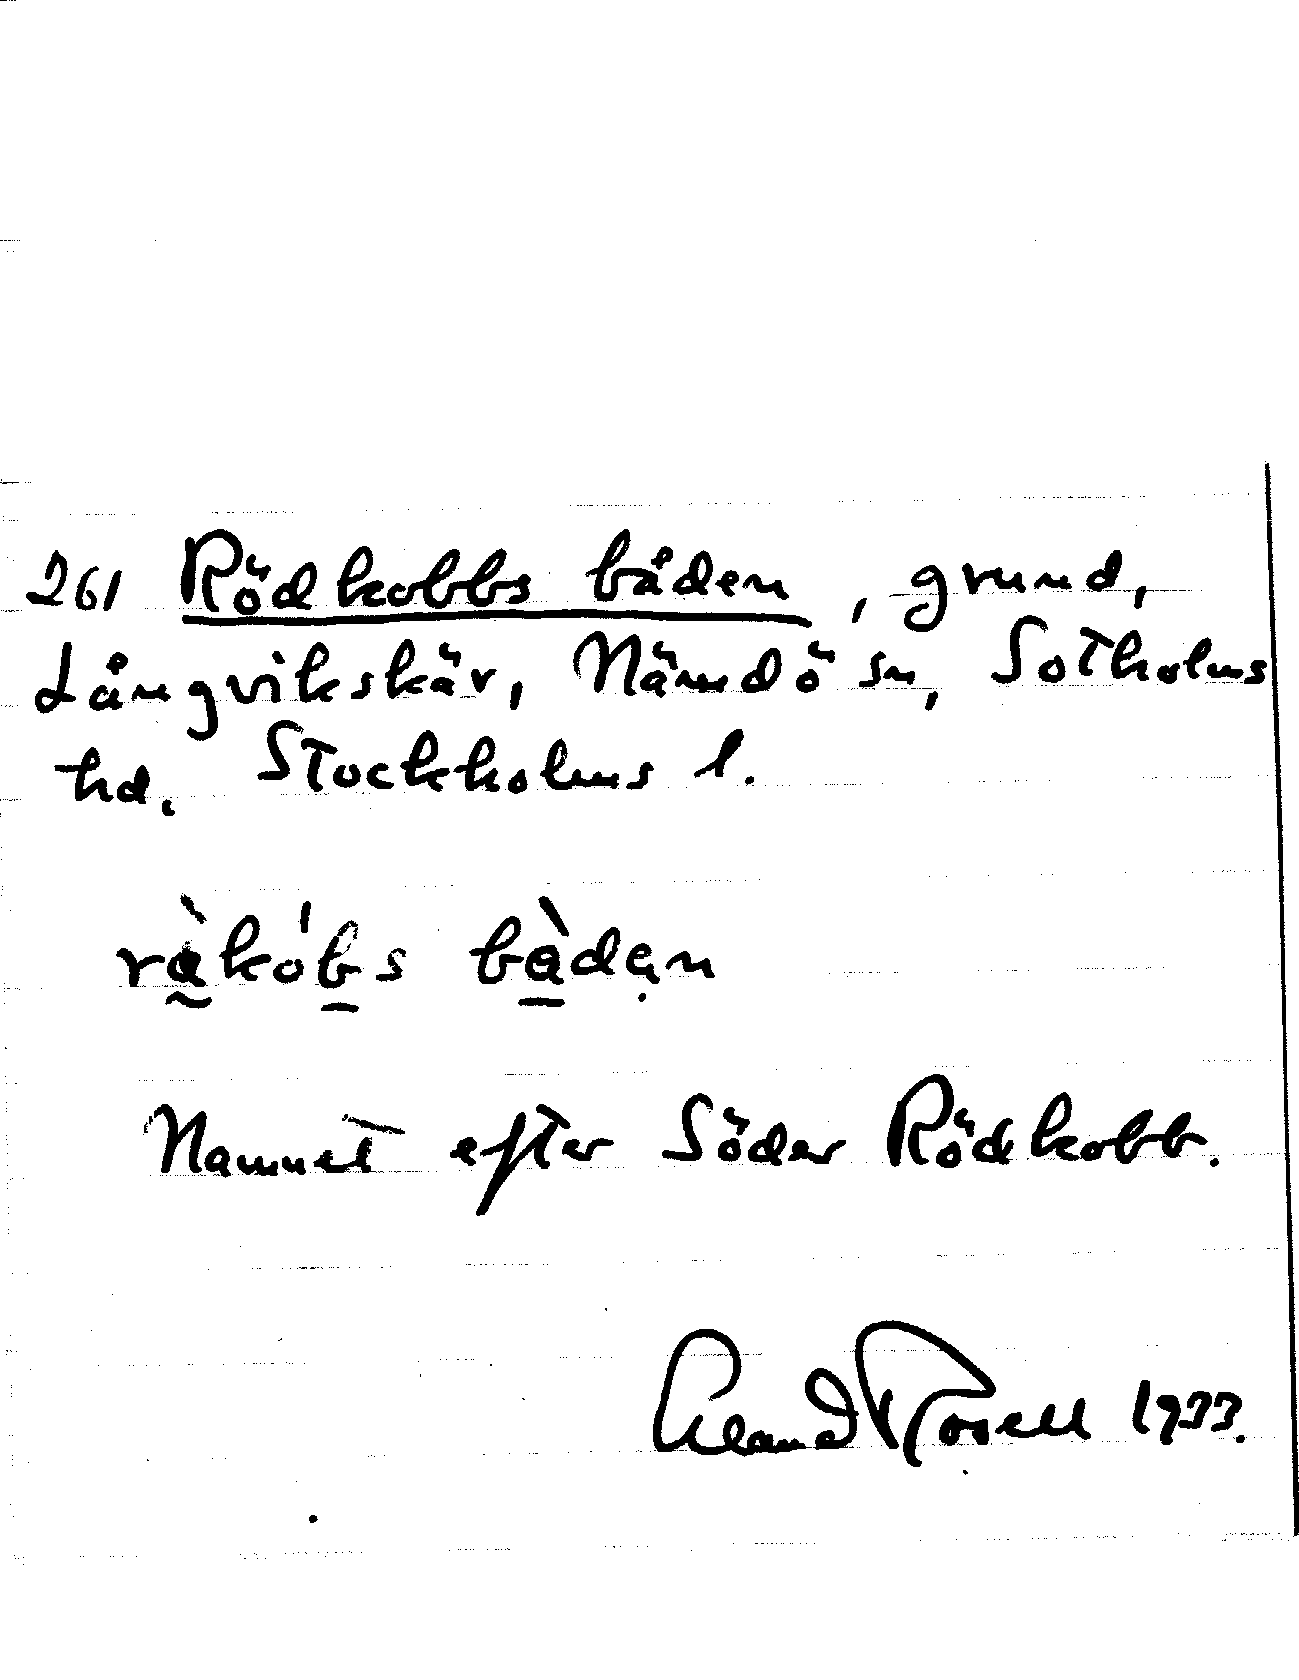 261 Rödkobbs båden, grund,
Långvikskär, Nämdö sn, Sotholms
hd. Stockholms l.
ràkóbs bàdẹn
Namnet efter Söder Rödkobb.
Rosell 1933.